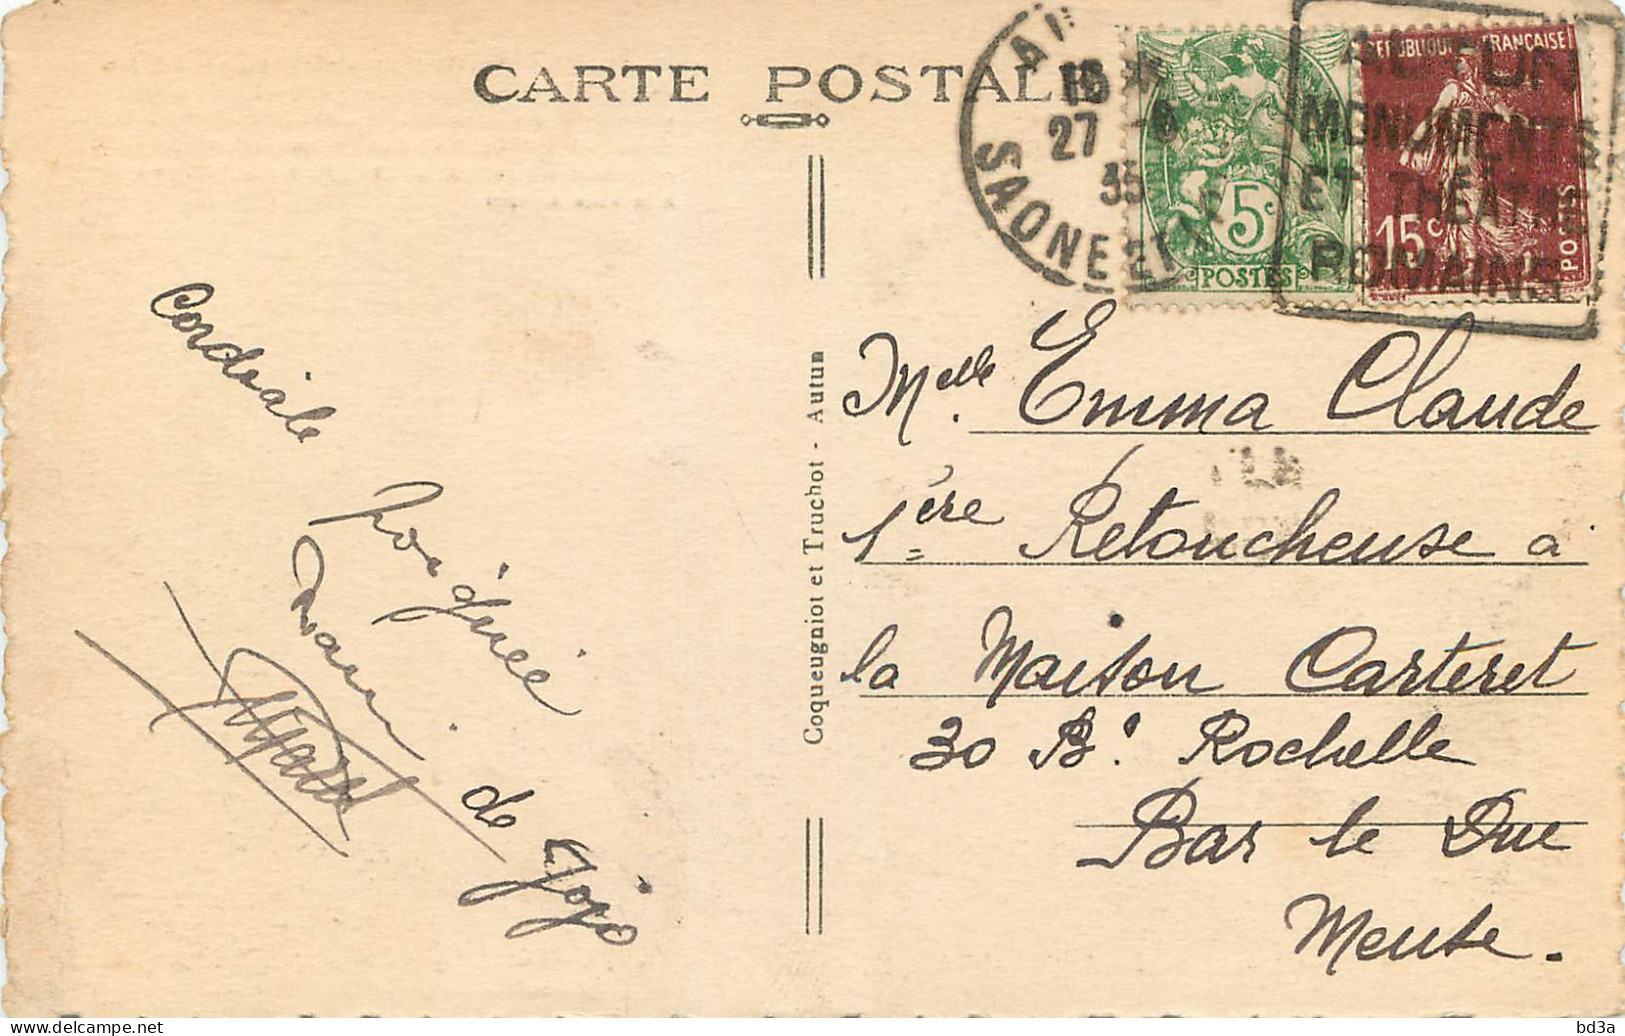 CARTE POSTALE
16
27 -8
35
SAONE ET
5c
POSTES
REPUBLIQUE FRANÇAISE
15c
POSTES
AUTUN
MONUMENTS
ET THÉATRE
ROMAINS
Cordiale
poignée
main
de Jojo
Coqueugniot et Truchot - Autun
Melle Emma Claude
1ère Retoucheuse à
la Maison Carteret
30 Bd Rochelle
Bar le Duc
Meuse.
bd3a